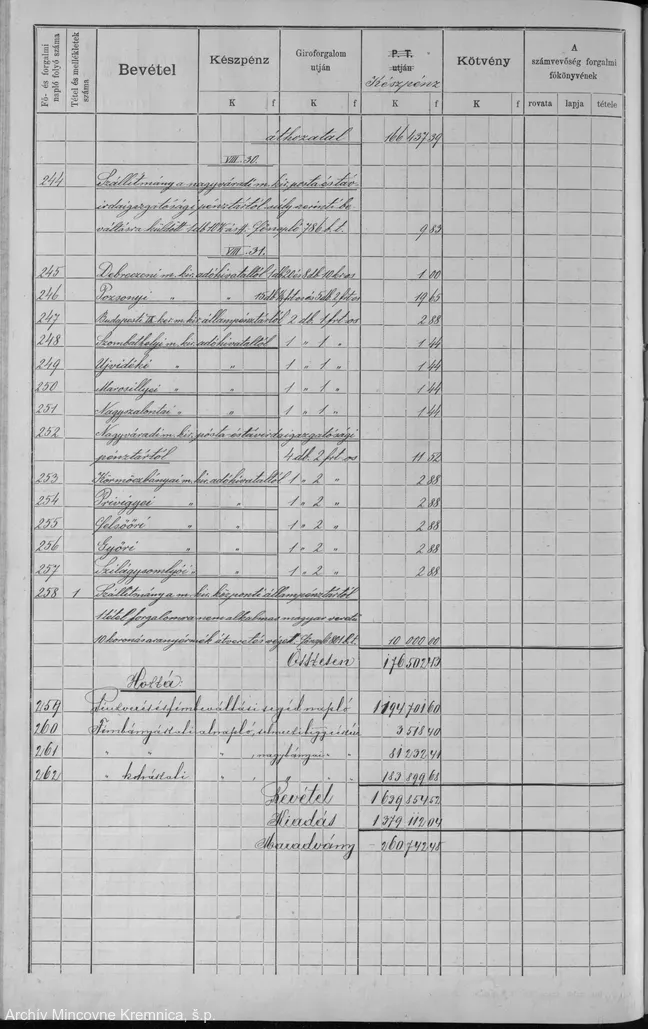 Fő- és forgalmi napló folyó száma
Tétel és mellékletek száma
Bevétel
Készpénz
Giroforgalom utján
P. T. utján
Készpénz
Kötvény
A számvevőség forgalmi főkönyvének
K f K f K f K f rovata lapja tétele
áthozatal 166 437 39
VIII. 30.
244 Szállítmány a nagyváradi m. kir. posta és táv-
irdaigazgatósági pénztártól súly szerinti be-
váltásra küldött 9 83
VIII. 31.
245 Debreczeni m. kir. adóhivataltól 1 00
246 Pozsonyi " " 19 65
247 Budapesti IX. ker. m. kir. állampénztártól 2 db. 1 frt os 2 88
248 Szombathelyi m. kir. adóhivataltól 1 " 1 " 1 44
249 Ujvidéki " " 1 " 1 " 1 44
250 Marosillyei " " 1 " 1 " 1 44
251 Nagyszalontai " " 1 " 1 " 1 44
252 Nagyváradi m. kir. posta és távirdaigazgatósági
pénztártól 4 db. 2 frt os 11 52
253 Körmöczbányai m. kir. adóhivataltól 1 " 2 " 2 88
254 Privigyei " " 1 " 2 " 2 88
255 Felsőőri " " 1 " 2 " 2 88
256 Győri " " 1 " 2 " 2 88
257 Szilágysomlyói " " 1 " 2 " 2 88
258 1 Szállítmány a m. kir. központi állampénztártól
1 tétel forgalomra nem alkalmas magyar veretű
10 koronás aranyérmék átveretés végett 10 000 00
Összesen 176 502 13
Hozzá:
259 segédnapló 1 194 701 60
260 Fémbányászati alnapló, 3 518 40
261 " " " , nagybányai " " 81 232 41
262 " kohászati " , " " 183 899 68
Bevétel 1 639 854 52
Kiadás 1 379 112 04
Maradvány 260 742 48
Archív Mincovne Kremnica, š.p.